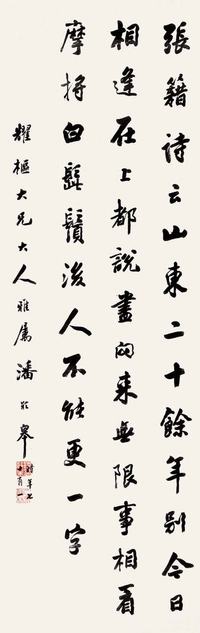 張籍詩云山東二十餘年别今日
相逢在上都說盡向来無限事相看
摩捋白髭鬚後人不能更一字
耀樞大兄大人雅屬 潘齡皋
時年七十有一